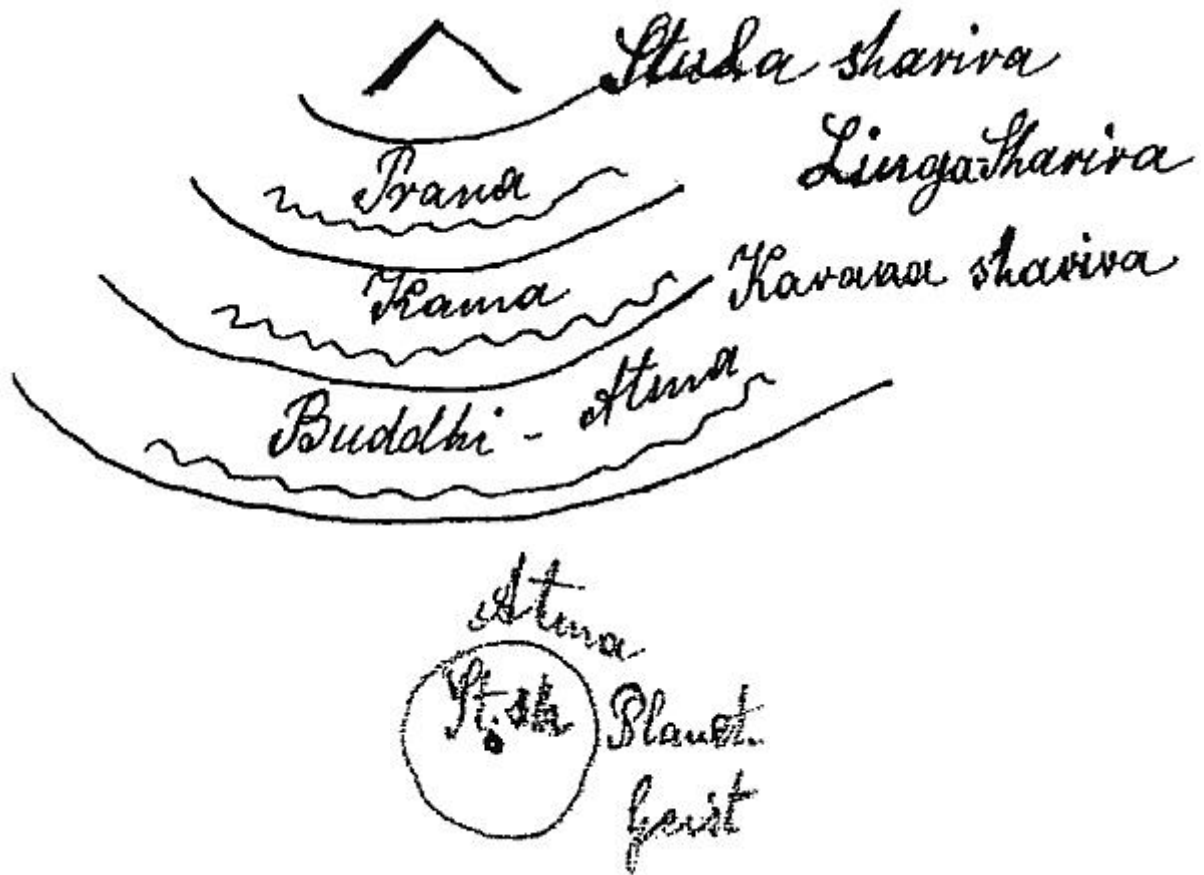 Stula sharira
Linga Sharira
Prana
Karana sharira
Kama
Buddhi - Atma
Atma
St. sh
Planet.
geist